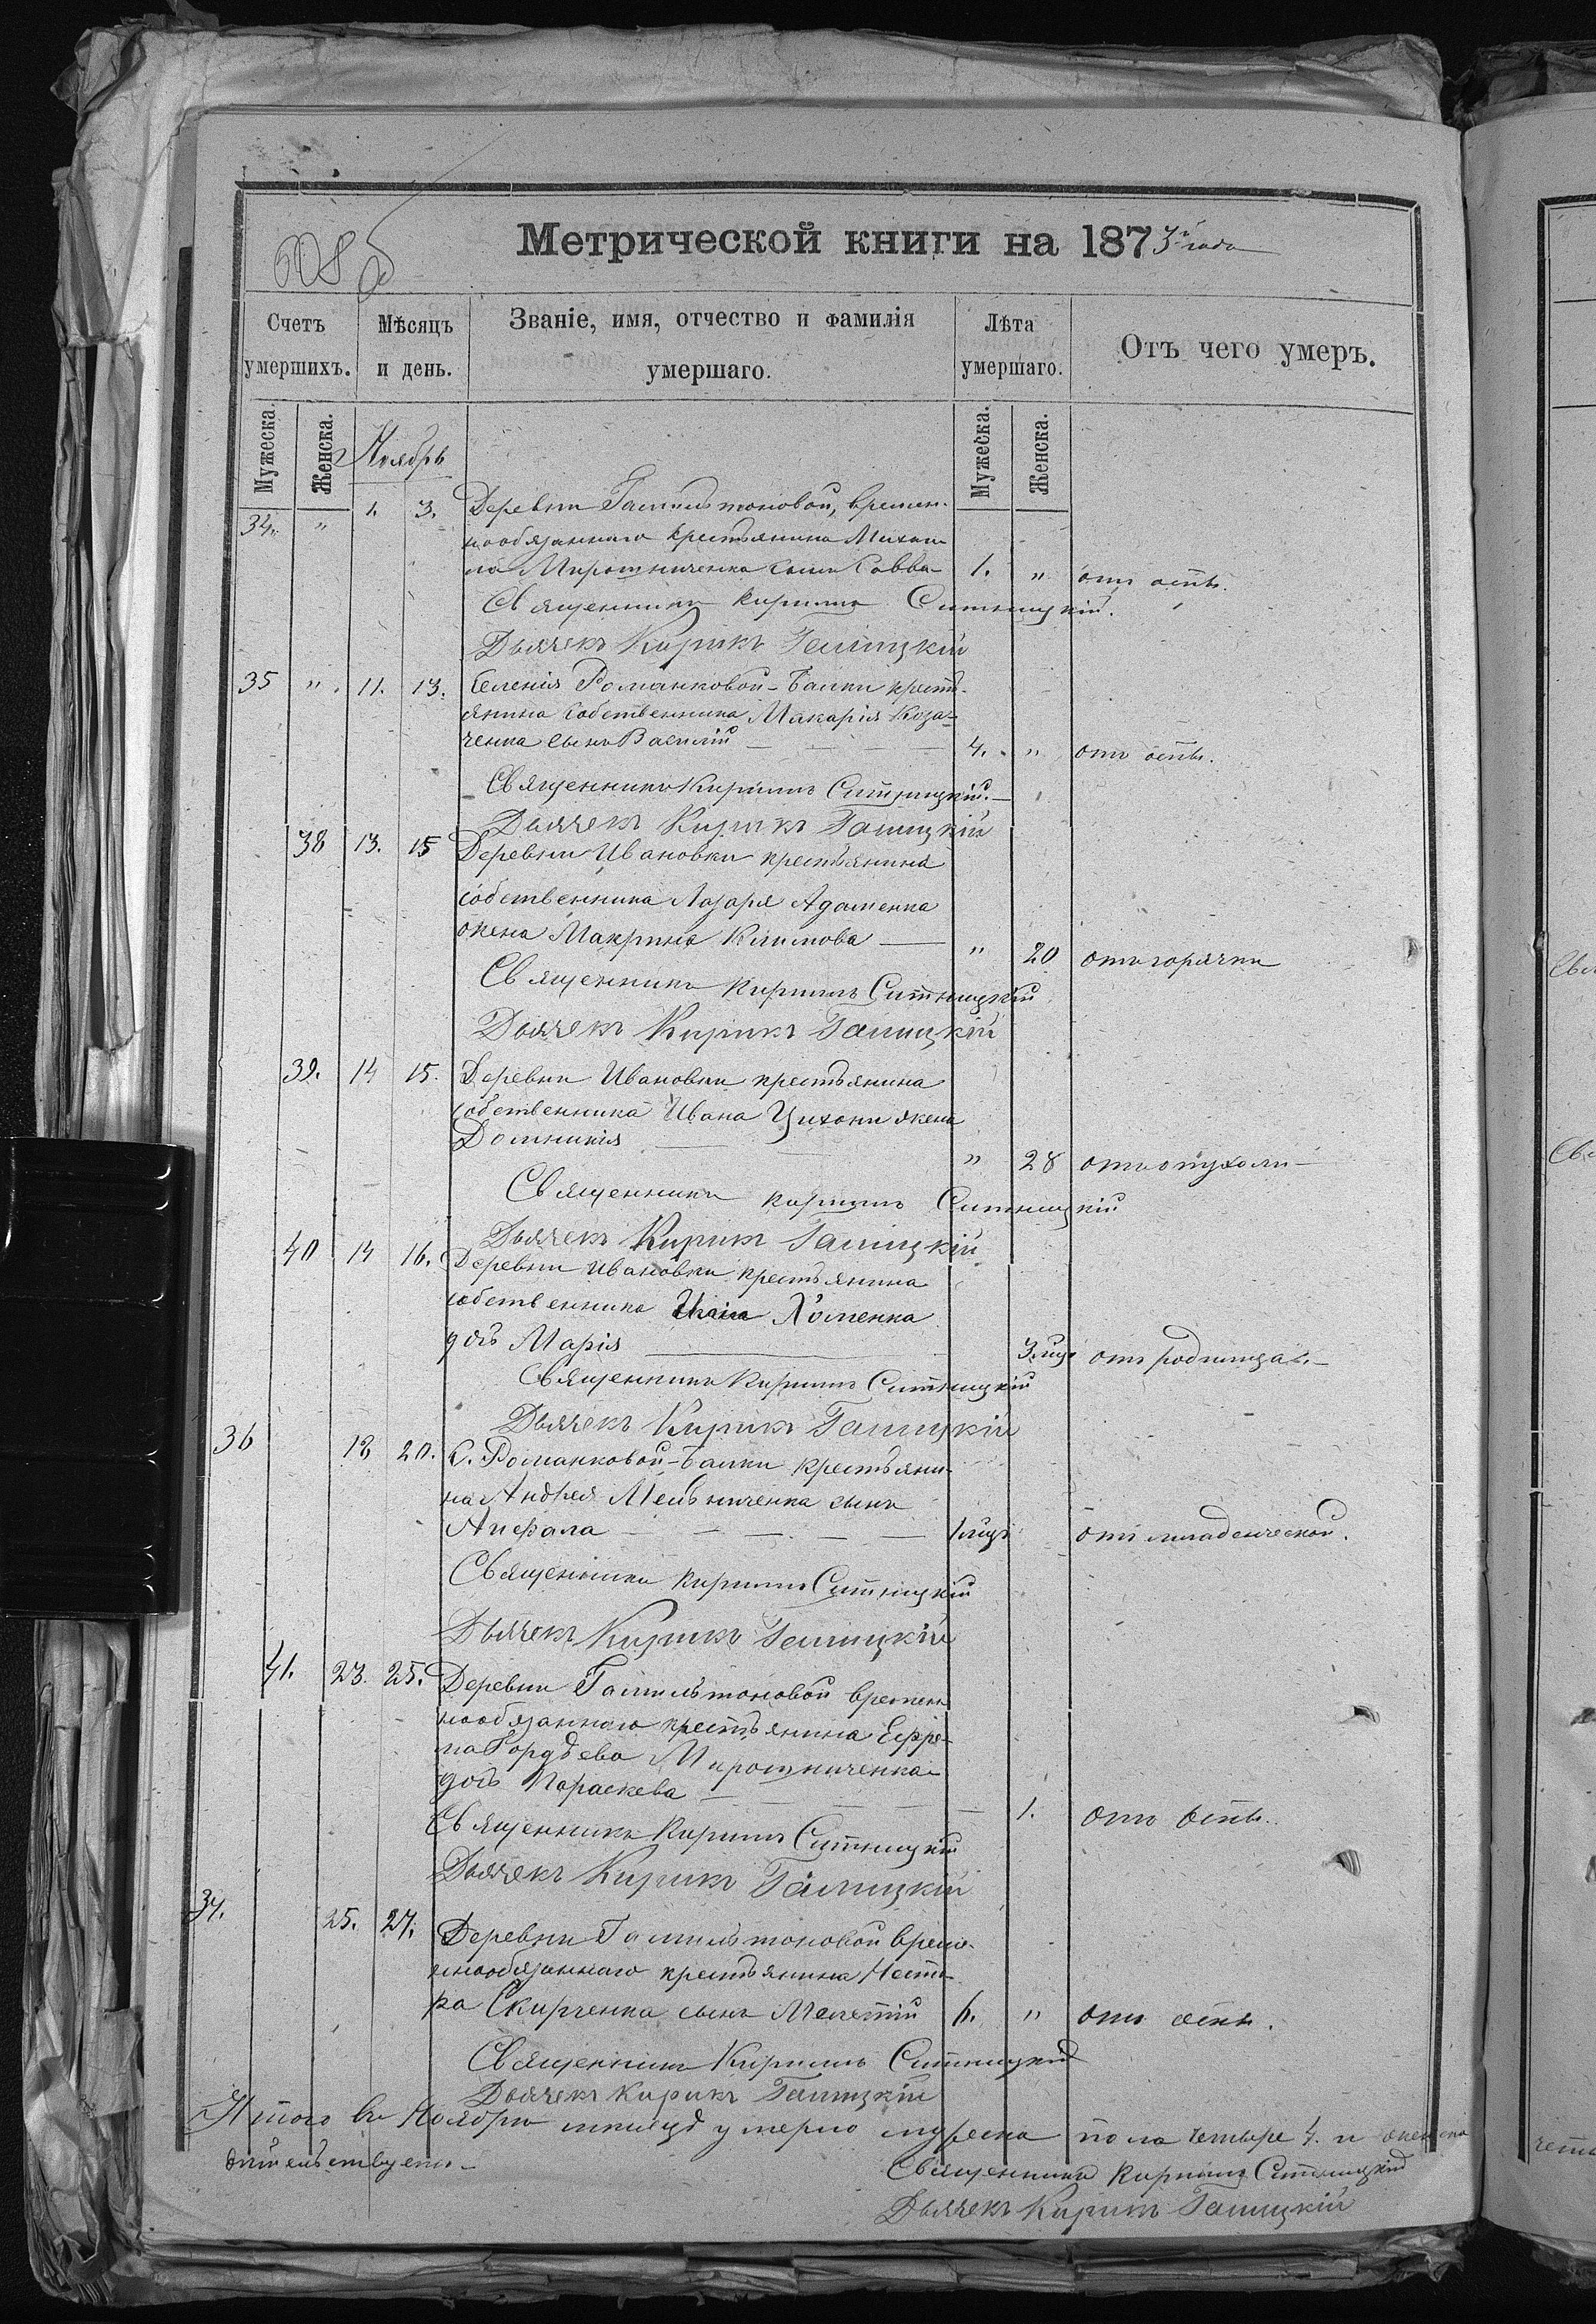 608 об
Метрической книги на 1873й года
Счетъ умершихъ.
Мѣсяцъ и день.
Званіе, имя, отчество и фамилія умершаго.
Лѣта умершаго.
Отъ чего умеръ.
Мужеска.
Женска.
Ноябрь
Мужеска.
Женска.
34. " 1. 3. Деревни Гамильтоновой, времен-
нообязаннаго крестьянина Михаи-
ла Мирошниченка сынъ Савва 1. " отъ оспы.
Священникъ Кириллъ Ситницкій.
Дьячекъ Кирикъ Галицкій
35 " 11. 13. Селенія Романковой-Балки кресть-
янина собственника Макарія Коза-
ченка сынъ Василій 4. " отъ оспы.
Священникъ Кириллъ Ситницкій.
Дьячекъ Кирикъ Галицкій
38 13. 15 Деревни Ивановки крестьянина
собственника Лазаря Адаменка
жена Макрина Климова " 20 отъ горячки
Священникъ Кириллъ Ситницкій
Дьячекъ Кирикъ Галицкій
39. 14 15. Деревни Ивановки крестьянина
собственника Ивана Цихони жена
Домникія " 28 отъ опухоли
Священникъ Кириллъ Ситницкій
Дьячекъ Кирикъ Галицкій
40 14 16. Деревни Ивановки крестьянина
собственника Хоменка
дочь Марія 3 мце отъ родимца.
Священникъ Кириллъ Ситницкій
Дьячекъ Кирикъ Галицкій
36 18 20. С. Романковой-Балки крестьяни-
на Андрея Мельниченка сынъ
Амфала 1 мца отъ младенческой.
Священникъ Кириллъ Ситницкій
Дьячекъ Кирикъ Галицкій
41. 23. 25. Деревни Гамильтоновой времен
нообязаннаго крестьянина Ефре-
ма Гордѣева Мирошниченка
дочь Параскева 1. отъ оспы.
Священникъ Кириллъ Ситницкій
Дьячекъ Кирикъ Галицкій
37. 25. 27. Деревни Гамильтоновой време-
ннообязаннаго крестьянина Несто-
ра Скирченка сынъ Мелетій 6. " отъ оспы.
Священникъ Кириллъ Ситницкій
Дьячекъ Кирикъ Галицкій
Итого въ Ноябрѣ мѣсяцѣ умерло мужеска пола четыре 4. и женска
Священникъ Кириллъ Ситницкій
Дьячекъ Кирикъ Галицкій